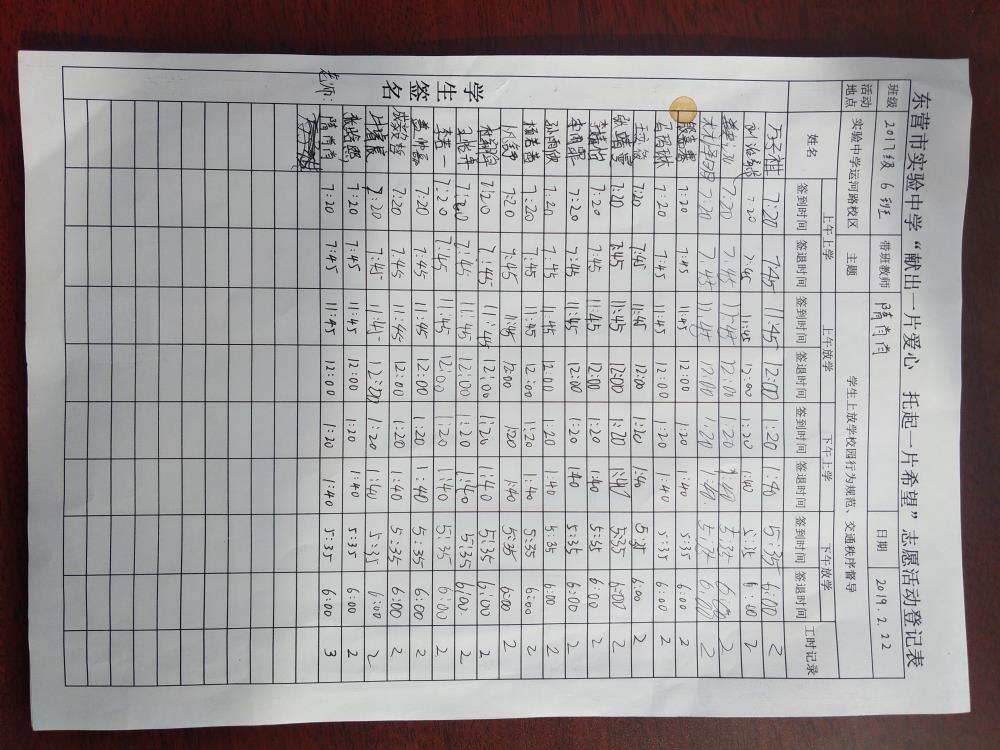 东营市实验中学“献出一片爱心 托起一片希望”志愿活动登记表
班级 2017级 6班 带班教师 隋肖肖 日期 2019.2.22
活动地点 实验中学运河路校区 主题 学生上放学校园行为规范、交通秩序督导
姓名 上午上学 上午放学 下午上学 下午放学 工时记录
签到时间 签退时间 签到时间 签退时间 签到时间 签退时间 签到时间 签退时间
学生签名
7:20 7:45 11:45 12:00 1:20 1:40 5:35 6:00 2
7:20 7:45 11:45 12:00 1:20 1:40 5:35 6:00 2
7:20 7:45 11:45 12:00 1:20 1:40 5:35 6:00 2
7:20 7:45 11:45 12:00 1:20 1:40 5:35 6:00 2
7:20 7:45 11:45 12:00 1:20 1:40 5:35 6:00 2
7:20 7:45 11:45 12:00 1:20 1:40 5:35 6:00 2
7:20 7:45 11:45 12:00 1:20 1:40 5:35 6:00 2
7:20 7:45 11:45 12:00 1:20 1:40 5:35 6:00 2
7:20 7:45 11:45 12:00 1:20 1:40 5:35 6:00 2
7:20 7:45 11:45 12:00 1:20 1:40 5:35 6:00 2
孙雨欣 7:20 7:45 11:45 12:00 1:20 1:40 5:35 6:00 2
杨若茜 7:20 7:45 11:45 12:00 1:20 1:40 5:35 6:00 2
7:20 7:45 11:45 12:00 1:20 1:40 5:35 6:00 2
7:20 7:45 11:45 12:00 1:20 1:40 5:35 6:00 2
7:20 7:45 11:45 12:00 1:20 1:40 5:35 6:00 2
李若一 7:20 7:45 11:45 12:00 1:20 1:40 5:35 6:00 2
7:20 7:45 11:45 12:00 1:20 1:40 5:35 6:00 2
7:20 7:45 11:45 12:00 1:20 1:40 5:35 6:00 2
7:20 7:45 11:45 12:00 1:20 1:40 5:35 6:00 2
7:20 7:45 11:45 12:00 1:20 1:40 5:35 6:00 2
老师: 隋肖肖 7:20 7:45 11:45 12:00 1:20 1:40 5:35 6:00 3